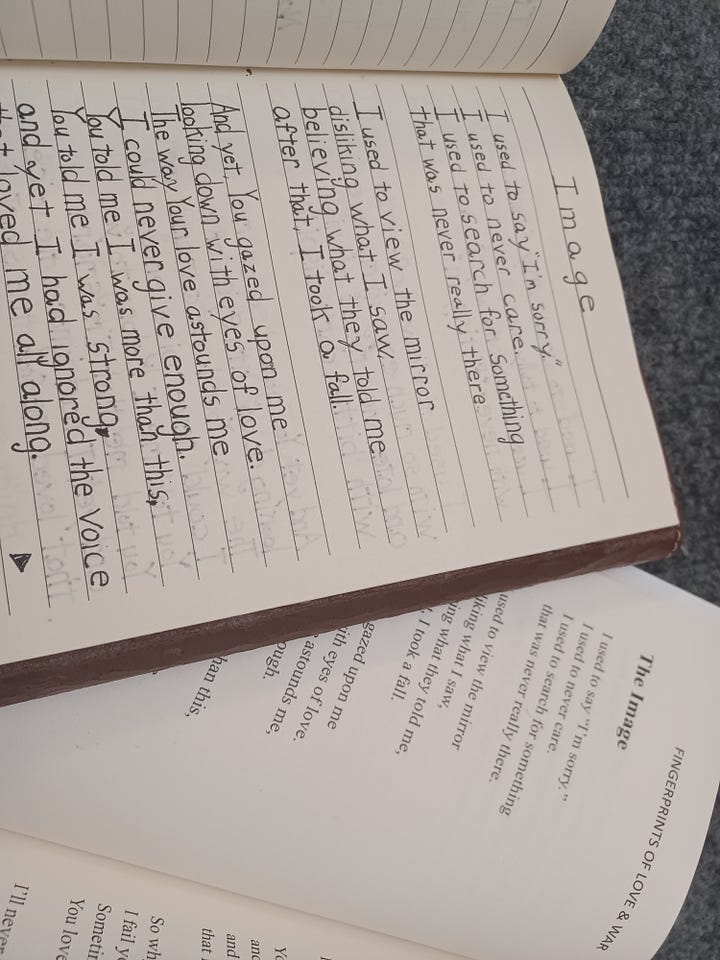 Image
I used to say "I'm sorry."
I used to never care.
I used to search for something
that was never really there.
I used to view the mirror
disliking what I saw.
believing what they told me
after that, I took a fall.
And yet, You gazed upon me
looking down with eyes of love.
The way Your love astounds me
I could never give enough.
You told me I was more than this,
You told me I was strong,
and yet I had ignored the voice
loved me all along.
FINGERPRINTS OF LOVE & WAR
The Image
I used to say "I'm sorry."
I used to never care.
I used to search for something
that was never really there.
used to view the mirror
what I saw,
what they told me,
I took a fall.
gazed upon me
with eyes of love.
astounds me,
than this,
I'll never
You love
I fail
So
that
and